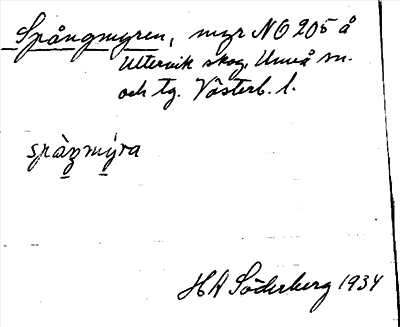 Spångmyren, myr NO 205 å
Ultervik skog, Umeå sn.
och tg. Västerb. l.
spàŋmýra
HA Söderberg 1934